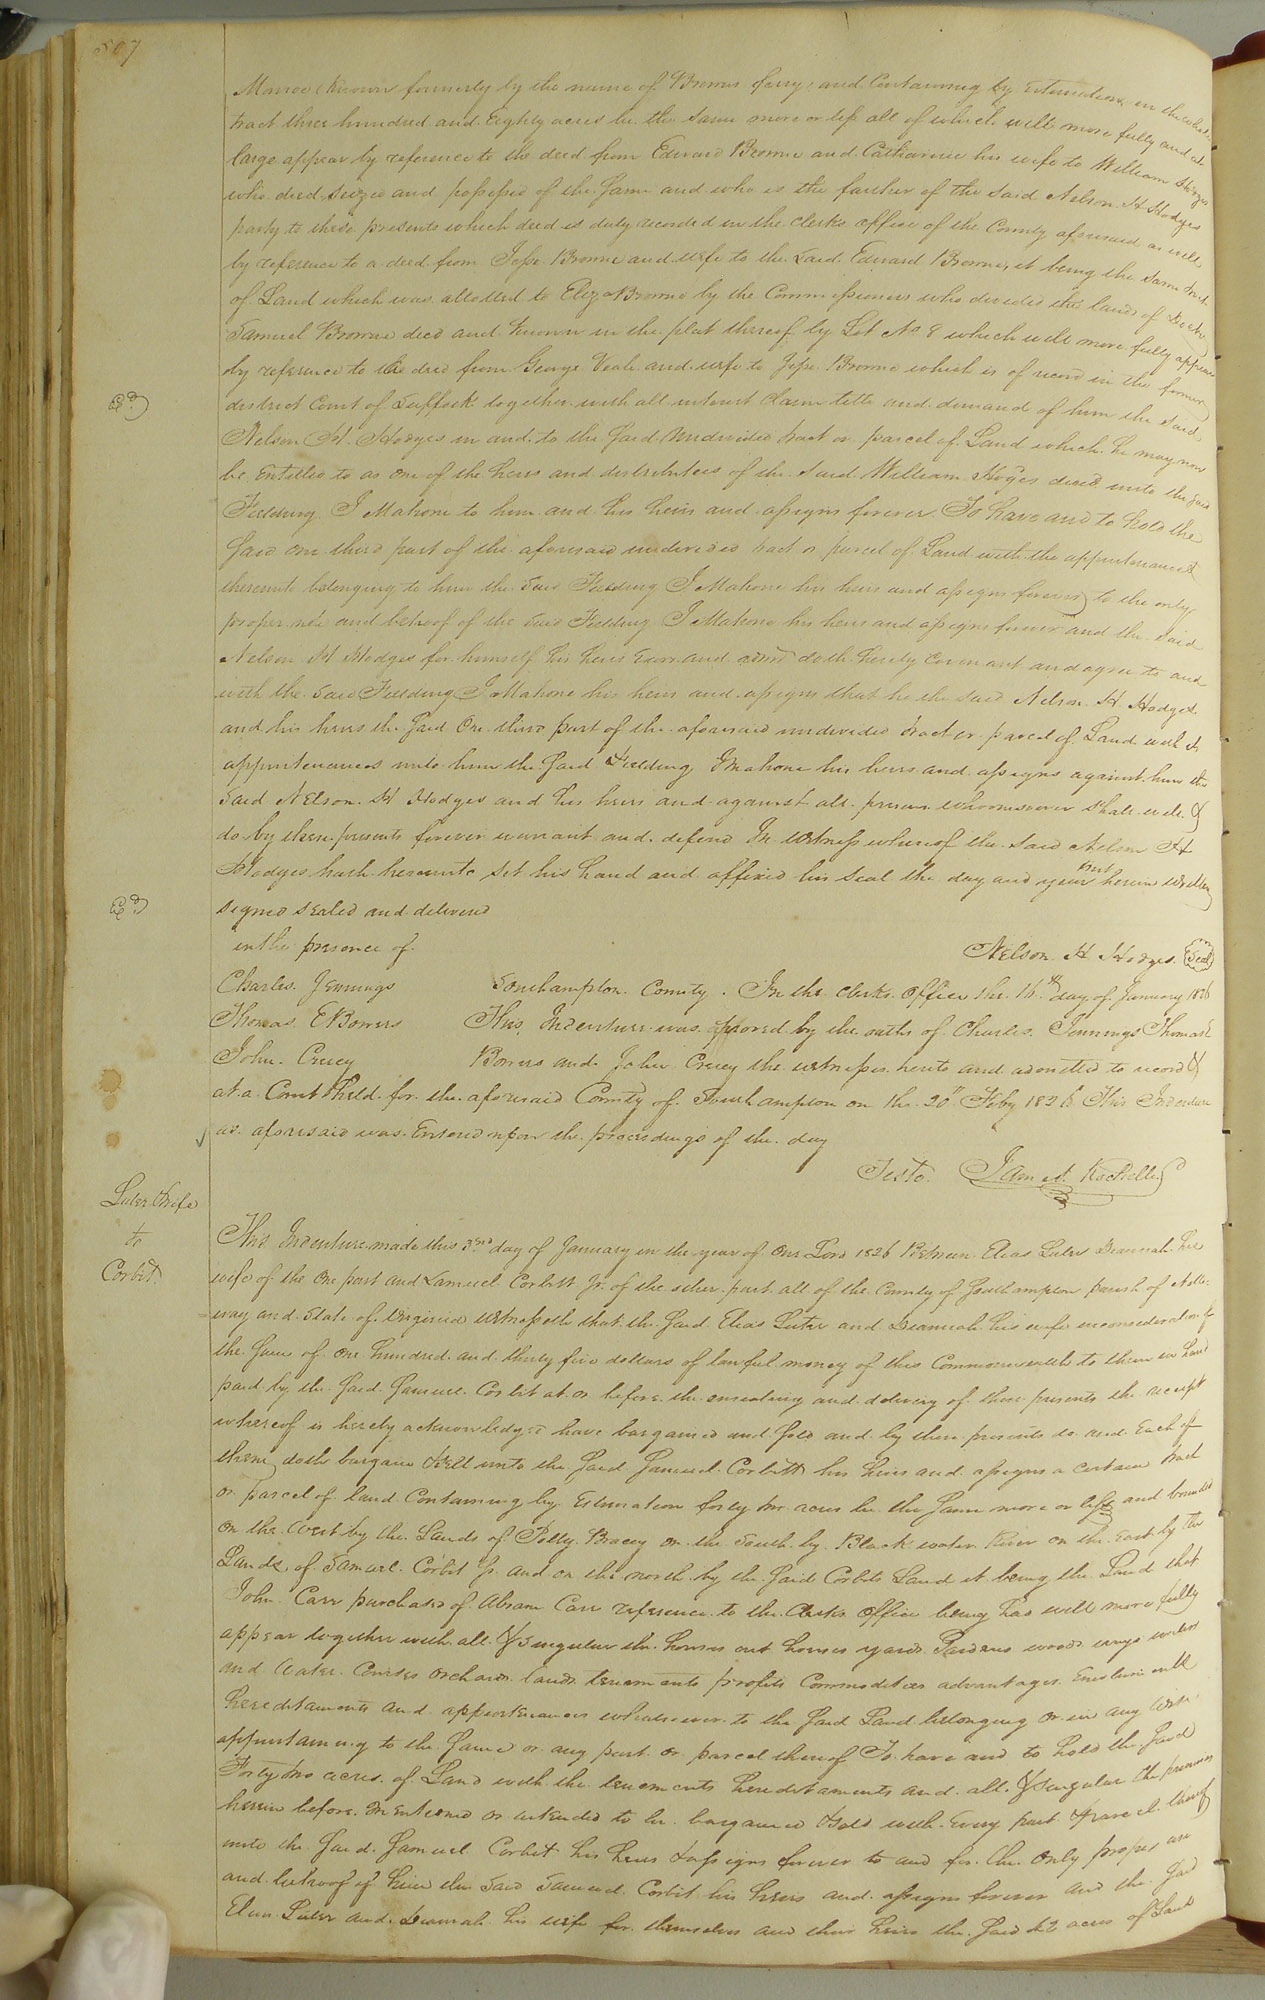 507
Monroe (Known formerly by the name of Browns ferry) and Containing by Estimation in the whole
tract three hundred and Eighty acres be the same more or less all of which will more fully and at
large appear by reference to the deed from Edward Browne and Catharine his wife to William Hodges
who died seized and possessed of the same and who is the farther of the said Nelson H Hodges
party to these presents which deed is duly recorded in the clerks office of the County aforesaid as well
by reference to a deed from Jesse Browne and wife to the said Edward Browne, it being the same tract
of Land which was allotted to Eliza Browne by the Commissioners who divided the lands of Doctr
Samuel Browne decd and Known in the plat thereof by Lot No 8 which will more fully appear
by reference to the deed from George Veale and wife to Jesse Browne which is of record in the former
district Court of Suffolk together with all interest claim title and demand of him the said
Nelson H. Hodges in and to the said undivided tract or parcel of Land which he may now
be Entitled to as one of the heirs and distributees of the said William Hodges decd unto the said
Fielding J Mahone to him and his heirs and assigns forever To have and to hold the
said one third part of the aforesaid undivided tract or parcel of Land with the appurtenances
thereunto belonging to him the said Fielding J Mahone his heirs and assigns forever to the only
proper use and behoof of the said Fielding J Mahone his heirs and assigns forever and the said
Nelson H Hodges for himself his heirs Exrs and admrs doth hereby Covenant and agree to and
with the said Fielding J Mahone his heirs and assigns that he the said Nelson H. Hodges
and his heirs the said One third part of the aforesaid undivided tract or parcel of Land with its
appurtenances unto him the said Fielding J Mahone his heirs and assigns against him the
said Nelson H Hodges and his heirs and against all persons whomsoever shall will &
do by these presents forever warrant and defend In witness whereof the said Nelson H
Hodges hath hereunto set his hand and affixed his seal the day and year first herein written
signed sealed and delivered
in the presence of
Nelson H Hodges Seal
Charles Jennings
Southampton County. In the clerks office the 16th day of January 1826
Thomas E Bowers
This Indenture was proved by the oaths of Charles Jennings Thomas E
John Crecy
Bowers and John Crecy the witnesses hereto and admitted to record &
at a Court Held for the aforesaid County of Southampton on the 20th Feby 1826 This Indenture
as aforesaid was Entered upon the proceedings of the day
Teste. James Rochelle
Luter & wife
to
Corbit
This Indenture made this 3rd day of January in the year of Our Lord 1826 Between Elias Luter Deannah his
wife of the One part and Samuel Corbitt Jr. of the other part all of the County of Southampton parish of Notto-
=way and State of Virginia Witnesseth that the said Elias Luter and Deannah his wife in consideration of
the sum of One hundred and thirty five dollars of lawful money of this Commonwealth to them in hand
paid by the said Samuel Corbit at or before the ensealing and delivery of these presents the receipt
whereof is hereby acknowledged have bargained and sold and by these presents do and Each of
them doth bargain & sell unto the said Samuel Corbitt his heirs and assigns a certain tract
or parcel of land Containing by Estimation forty two acres be the same more or less and bounded
on the West by the Lands of Polly Bracey on the South by Black water River on the East by the
Lands of Samuel Corbit Jr and on the north by the said Corbits Land it being the Land that
John Carr purchased of Abram Carr reference to the Clerks Office being had will more fully
appear together with all & singular the houses out houses yards Gardens woods ways waters
and Water Courses Orchards lands tenements profits Commodities advantages Emoluments
hereditaments and appurtenances whatsoever to the said Land belonging or in any wise
appurtaining to the same or any part or parcel thereof To have and to hold the said
Forty two acres of Land with the tenements hereditaments and all & singular the premises
herein before Mentioned or intended to be bargained & sold with Every part & parcel thereof
unto the said Samuel Corbit his heirs & assigns forever to and for the Only proper use
and behoof of him the said Samuel Corbit his heirs and assigns forever and the said
Elias Luter and Deannah his wife for themselves and their heirs the said 42 acres of Land